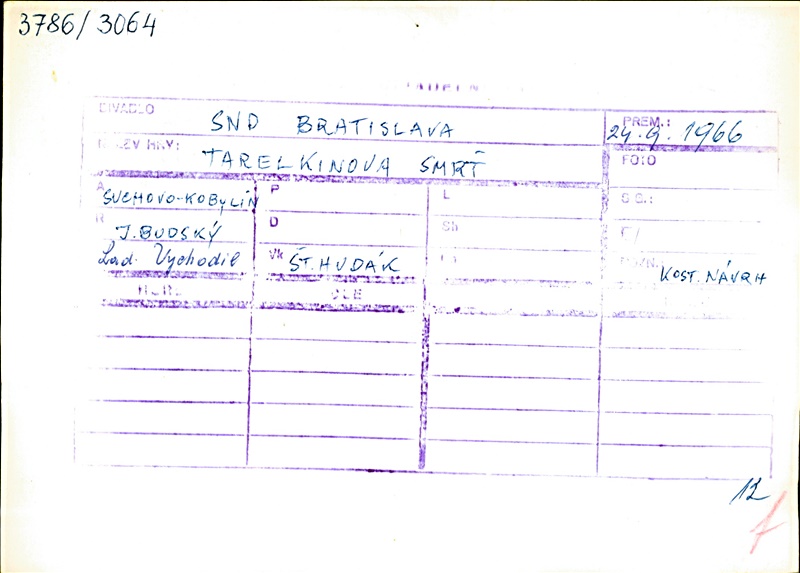 3786/3064
DIVADLO SND BRATISLAVA PREM.: 24.9.1966
NÁZEV HRY: TARELKINOVA SMRŤ FOTO
A SUCHOVO-KOBYLIN P L
R J. BUDSKÝ D Sh
Lad. Vychodil Vk ŠT. HUDÁK KOST. NÁVRH
12